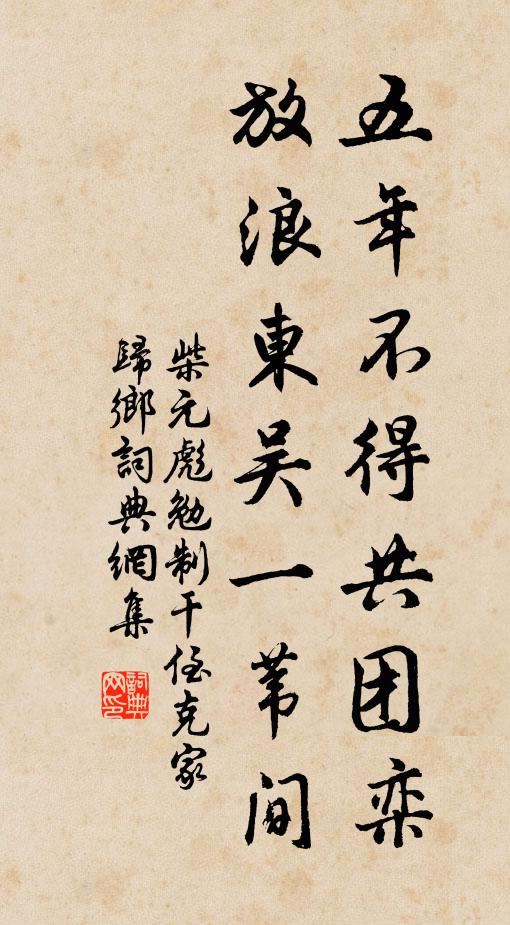 五年不得共团栾
放浪東吴一苇间
柴元彪勉制干侄克家
歸鄉詞典網集
詞典网印